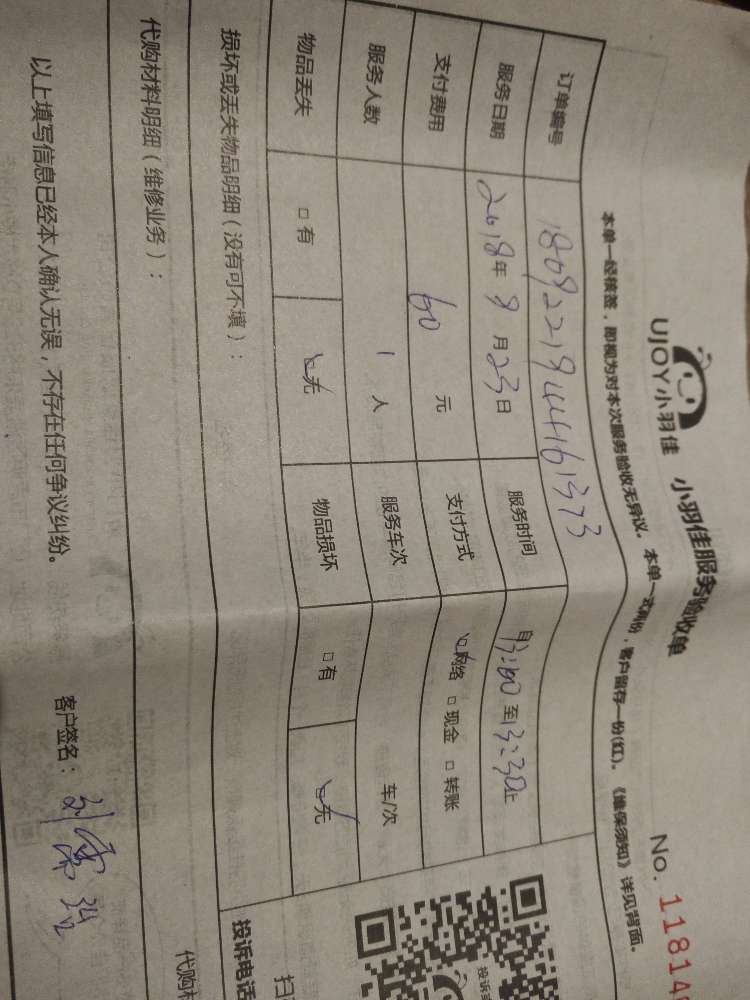 UJOY小羽佳 小羽佳服务验收单 No. 11814
本单一经核签，即视为对本次服务验收无异议。本单一式两份，客户留存一份(红)。《维保须知》详见背面。
订单编号 1809221944161373
服务日期 2018年9月23日 服务时间 自13:00至13:30止
支付费用 60元 支付方式 □网络 □现金 □转账
服务人数 1人 服务车次 车/次
物品丢失 □有 □无 物品损坏 □有 □无
损坏或丢失物品明细（没有可不填）：
投诉电话
代购材料明细（维修业务）：
以上填写信息已经本人确认无误，不存在任何争议纠纷。 客户签名：